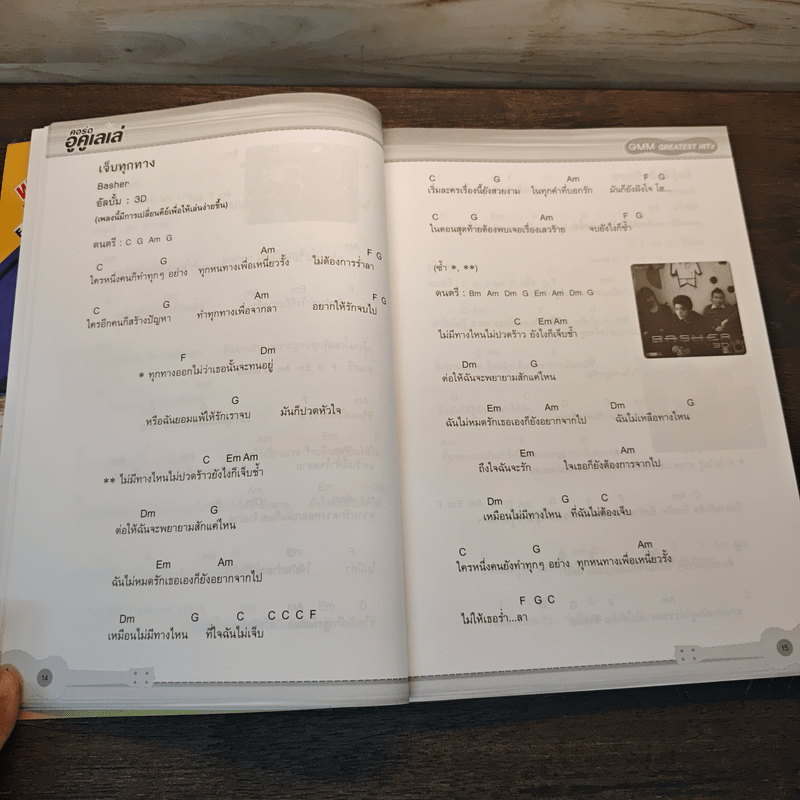 คอร์ด
อูคูเลเล่
เจ็บทุกทาง
Basher
อัลบั้ม : 3D
(เพลงนี้มีการเปลี่ยนคีย์เพื่อให้เล่นง่ายขึ้น)
ดนตรี : C G Am G
C G Am F G
ใครหนึ่งคนก็ทำทุกๆ อย่าง ทุกหนทางเพื่อเหนี่ยวรั้ง ไม่ต้องการร่ำลา
C G Am F G
ใครอีกคนก็สร้างปัญหา ทำทุกทางเพื่อจากลา อยากให้รักจบไป
F Dm
* ทุกทางออกไม่ว่าเธอนั้นจะทนอยู่
G
หรือฉันยอมแพ้ให้รักเราจบ มันก็ปวดหัวใจ
C Em Am
** ไม่มีทางไหนไม่ปวดร้าวยังไงก็เจ็บช้ำ
Dm G
ต่อให้ฉันจะพยายามสักแค่ไหน
Em Am
ฉันไม่หมดรักเธอเองก็ยังอยากจากไป
Dm G C C C C F
เหมือนไม่มีทางไหน ที่ใจฉันไม่เจ็บ
14
GMM GREATEST HITz
C G Am F G
เริ่มละครเรื่องนี้ยังสวยงาม ในทุกคำที่บอกรัก มันก็ยังฝังใจ โฮ...
C G Am F G
ในตอนสุดท้ายต้องพบเจอเรื่องเลวร้าย จบยังไงก็ช้ำ
(ซ้ำ *, **)
ดนตรี : Bm Am Dm G Em Am Dm G
C Em Am
ไม่มีทางไหนไม่ปวดร้าว ยังไงก็เจ็บช้ำ
BASHER
3D
Dm G
ต่อให้ฉันจะพยายามสักแค่ไหน
Em Am Dm G
ฉันไม่หมดรักเธอเองก็ยังอยากจากไป ฉันไม่เหลือทางไหน
Em Am
ถึงใจฉันจะรัก ใจเธอก็ยังต้องการจากไป
Dm G C
เหมือนไม่มีทางไหน ที่ฉันไม่ต้องเจ็บ
C G Am
ใครหนึ่งคนยังทำทุกๆ อย่าง ทุกหนทางเพื่อเหนี่ยวรั้ง
F G C
ไม่ให้เธอร่ำ...ลา
15